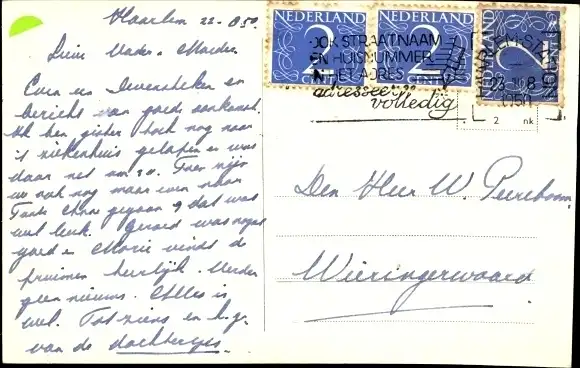 Haarlem 22-8 50.
Lieve Vader & Moeder.
Even een levensteken en
bericht van goed aankomst.
Ik ben gister toch nog naar
't ziekenhuis gelopen en was
daar net om 3 u. Toen zijn
we ook nog maar even naar
Tante gegaan & dat was
wel leuk. Gerard was nogal
goed en Marie vindt de
pruimen heerlijk. Verder
geen nieuws. Alles is
wel. Tot ziens en h.g.
van de dochtertjes.
NEDERLAND
2
CENT
NEDERLAND
2
CENT
NEDERLAND
2
OOK STRAATNAAM
EN HUISNUMMER
IN HET ADRES
adresseer
volledig
HAARLEM-STATION
23 8
1950
2 nk
Den Heer W. Peereboom
Wieringerwaard